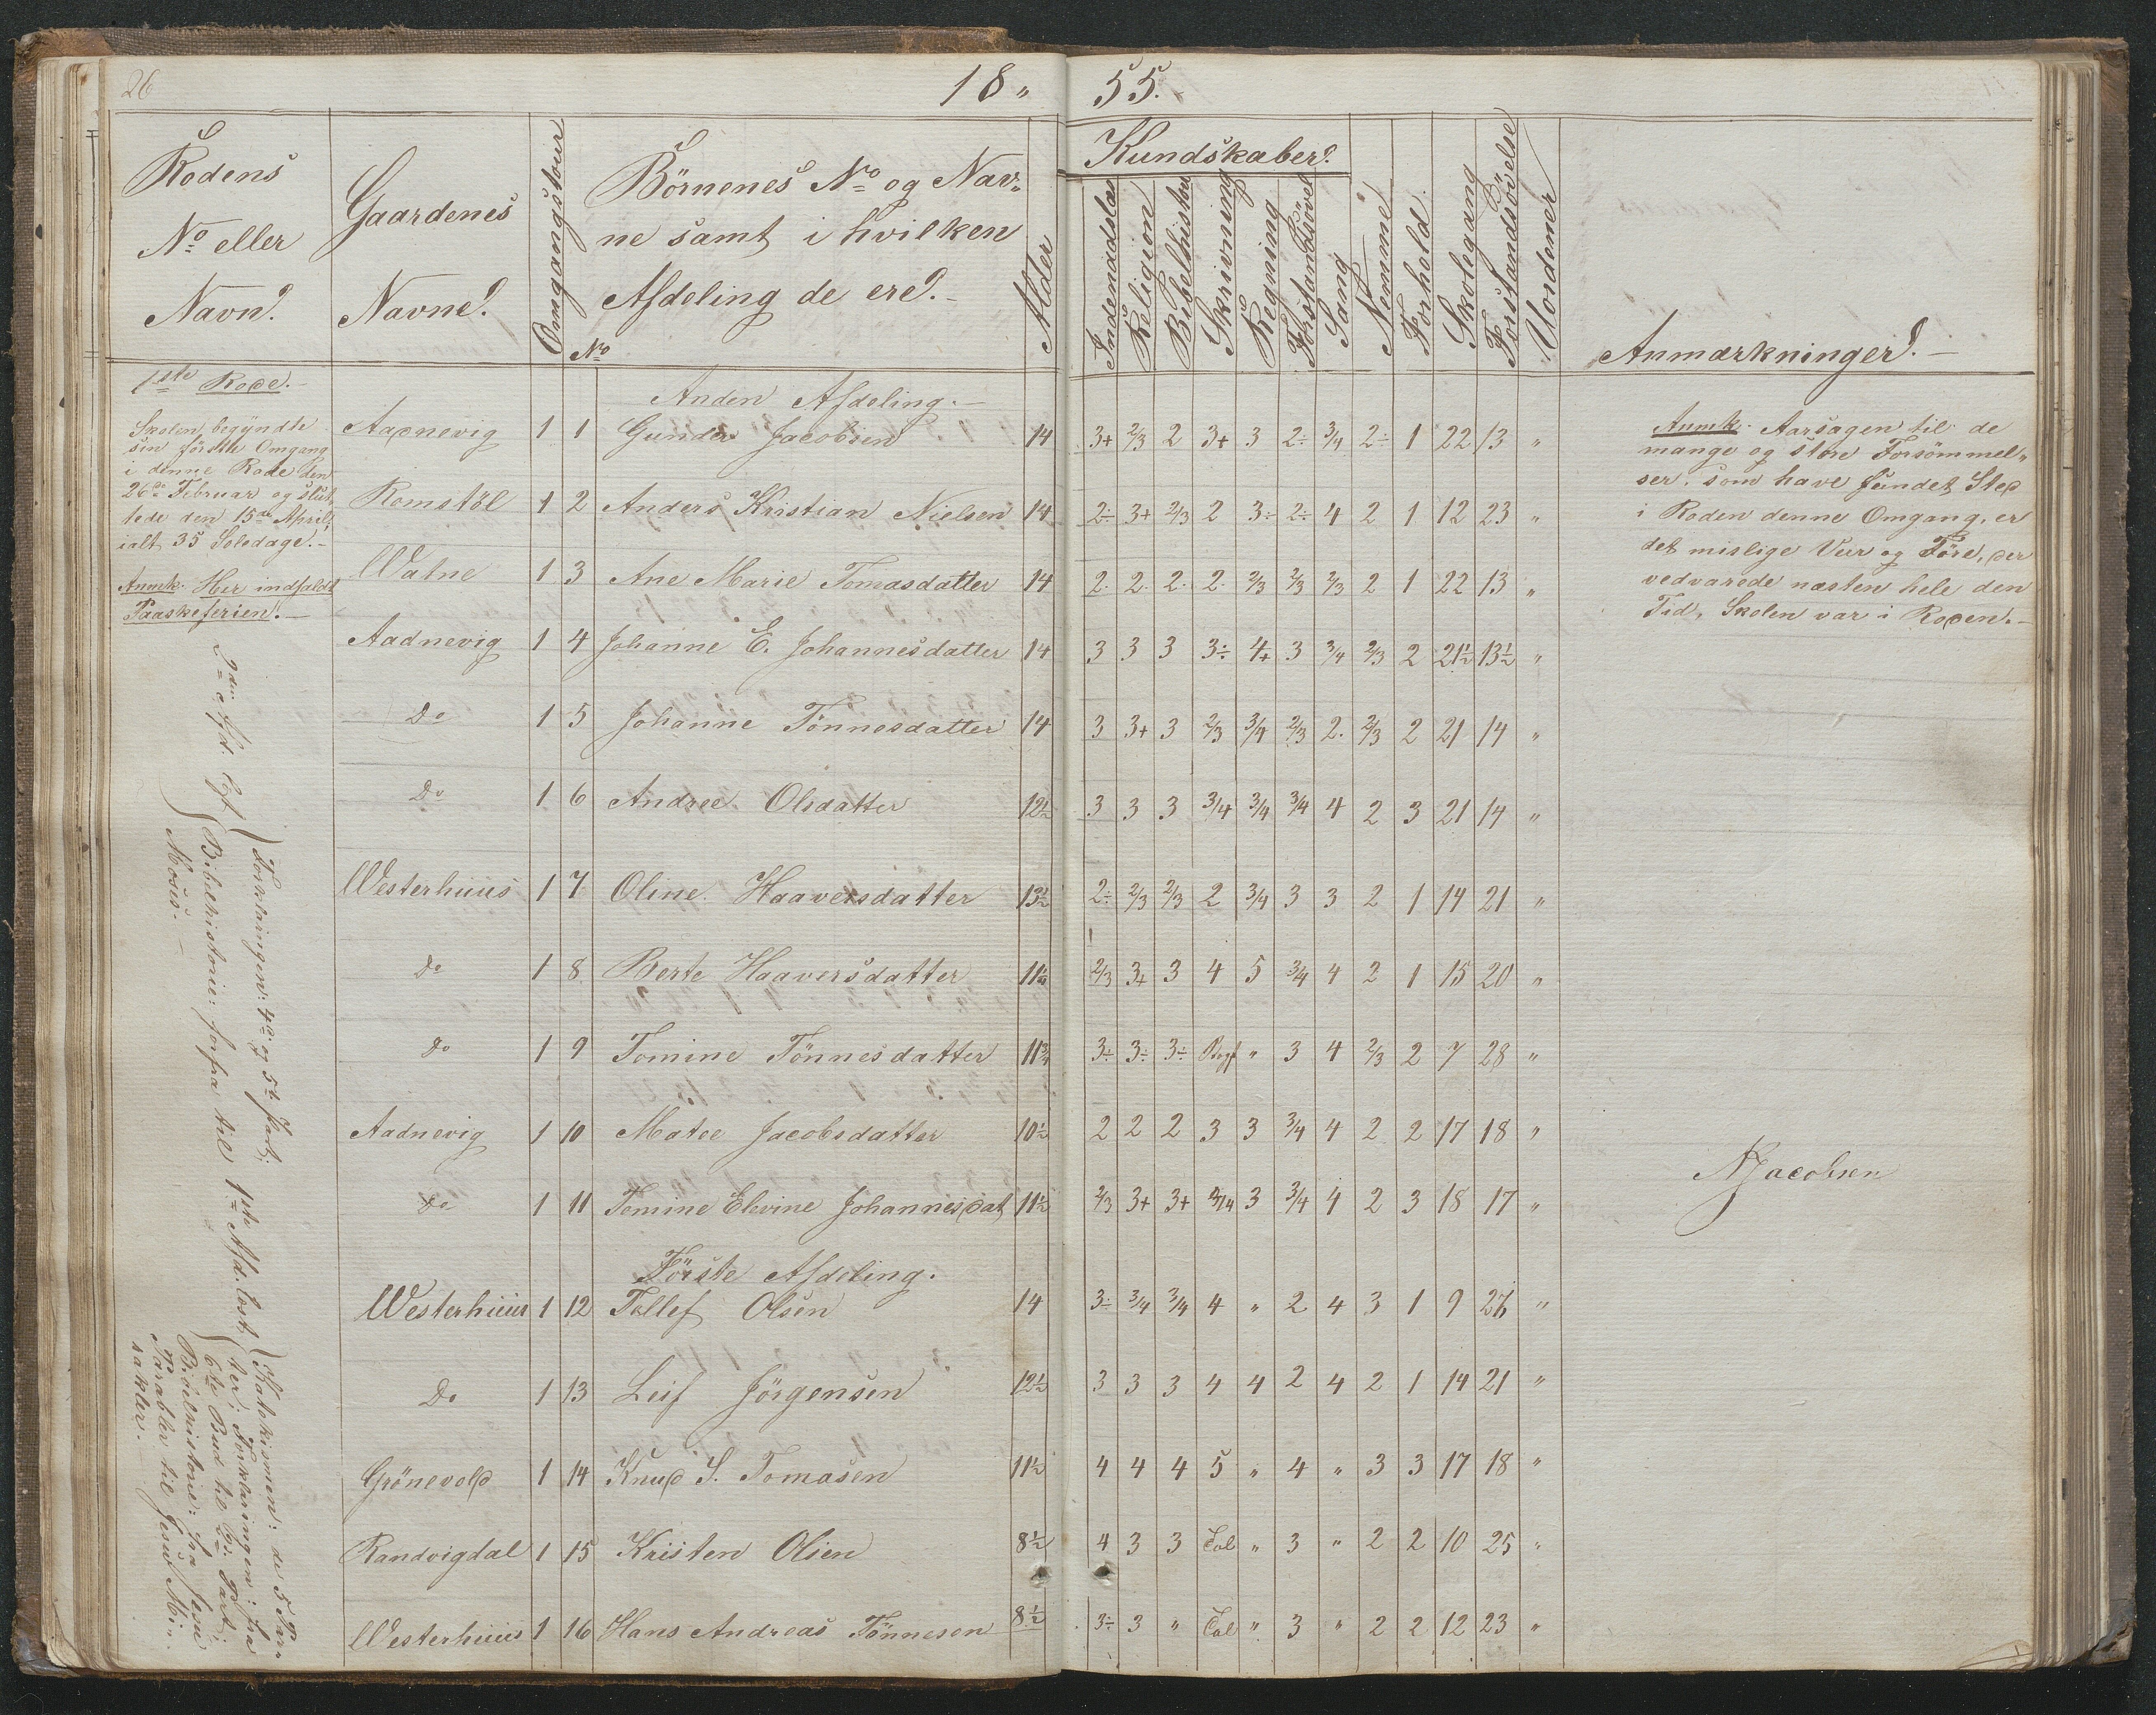 26
18 " 55.
Rodens
No eller
Navn.
Gaardenes
Navne.
Omgangstour
Börnenes No og Nav-
ne samt i hvilken
Afdeling de ere.
No
Alder
Kundskaber.
Indenadslæs
Religion
Bibelhistori
Skrivning
Regning
Forstandsövel
Sang
Nemme
Forhold
Skolegang
Forstandsövelse
Anmærkninger.
1ste Rode.
Skolen begyndte
sin förste Omgang
i denne Rode den
26de Februar og slut
tede den 15de April,
ialt 35 Soledage.
Anmk. Her indfaldt
Paaskeferien.
2den Afd. lært
Forklaringen: 4de og 5te Part;
Bibelhistorie: forfra til
Moses.
1ste Afd. læst
Katekismen: de 5 Par-
ter; Forklaringen: fra
6te Bud til 3die Part;
Bibelhistorie: fra Jesu
Parabler til Jesu Mi-
rakler.
Anden Afdeling.
Aadnevig 1 1 Gunder Jacobsen 14 3+ 2/3 2 3+ 3 2÷ 3/4 2÷ 1 22 13 "
Romstöl 1 2 Anders Kristian Nielsen 14 2÷ 3+ 2/3 2 3÷ 2÷ 4 2 1 12 23 "
Watne 1 3 Ane Marie Tomasdatter 14 2. 2. 2. 2. 2/3 2/3 2/3 2 1 22 13 "
Aadnevig 1 4 Johanne E. Johannesdatter 14 3 3 3 3÷ 4+ 3 3/4 2/3 2 21½ 13½ "
Do 1 5 Johanne Tönnesdatter 14 3 3+ 3 2/3 3/4 2/3 2. 2/3 2 21 14 "
Do 1 6 Andree Olsdatter 12½ 3 3 3 3/4 3/4 3/4 4 2 3 21 14 "
Westerhuus 1 7 Oline Haaversdatter 13½ 2÷ 2/3 2/3 2 3/4 3 3 2 1 14 21 "
Do 1 8 Berte Haaversdatter 11½ 2/3 3+ 3 4 5 3/4 4 2 1 15 20 "
Do 1 9 Tomine Tönnesdatter 11¾ 3÷ 3÷ 3÷ Bogst " 3 4 2/3 2 7 28 "
Aadnevig 1 10 Matee Jacobsdatter 10½ 2 2 2 3 3 3/4 4 2 2 17 18 "
Do 1 11 Temine Elevine Johannesdat 11½ 2/3 3+ 3+ 3/4 3 3/4 4 2 3 18 17 "
Förste Afdeling.
Westerhuus 1 12 Tallef Olsen 14 3÷ 3/4 3/4 4 " 2 4 3 1 9 26 "
Do 1 13 Leif Jörgensen 12½ 3 3 3 4 4 2 4 2 1 14 21 "
Grönevold 1 14 Knud S. Tomasen 11½ 4 4 4 5 " 4 " 3 3 17 18 "
Randvigdal 1 15 Kristen Olsen 8½ 4 3 3 Tal " 3 " 2 2 10 25 "
Westerhuus 1 16 Hans Andreas Tönnesen 8½ 3÷ 3 " Tal " 3 " 2 2 12 23 "
Anmk. Aarsagen til de
mange og store Forsömmel-
ser, som have fundet Sted
i Roden denne Omgang, er
det mislige Veir og Före, der
vedvarede næsten hele den
Tid, Skolen var i Roden.
NJacobsen